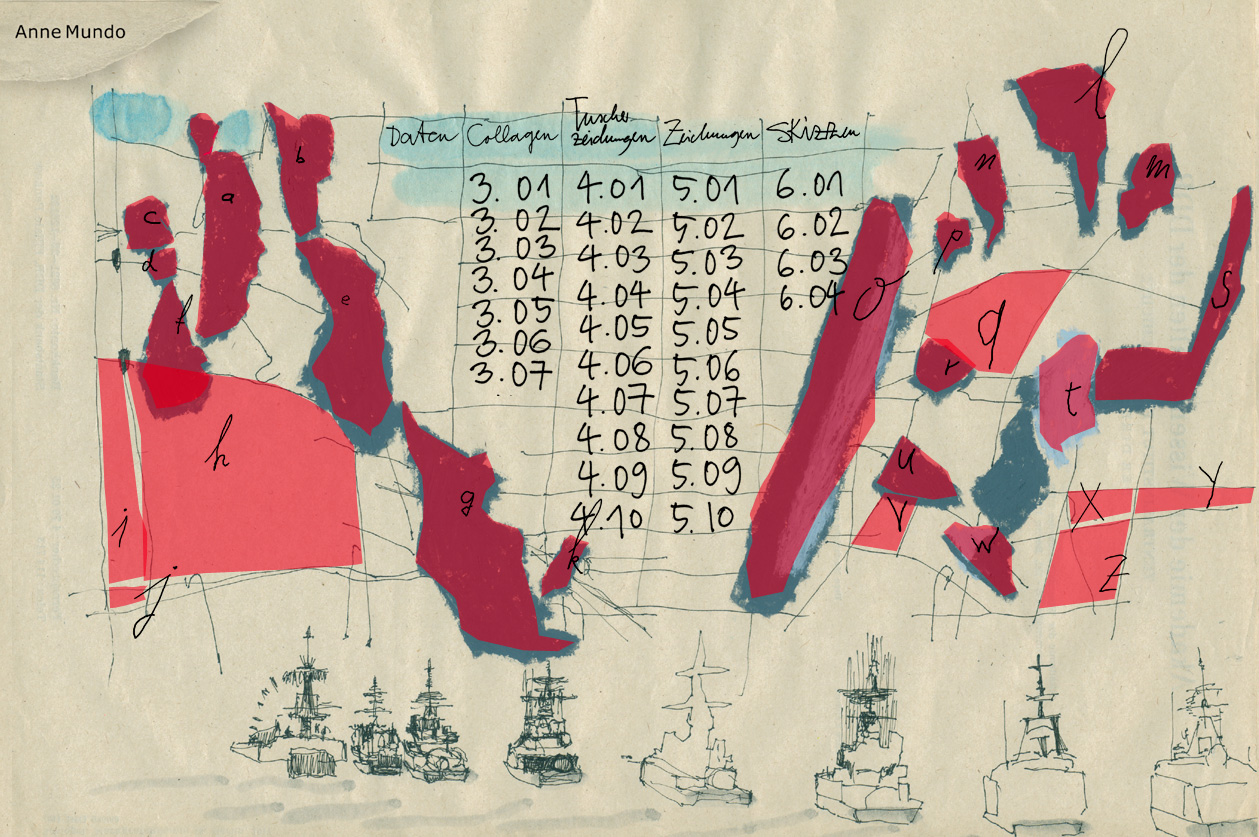 Anne Mundo
Daten Collagen Tuschezeichnungen Zeichnungen Skizzen
3.01 4.01 5.01 6.01
3.02 4.02 5.02 6.02
3.03 4.03 5.03 6.03
3.04 4.04 5.04 6.04
3.05 4.05 5.05
3.06 4.06 5.06
3.07 4.07 5.07
4.08 5.08
4.09 5.09
4.10 5.10
a
b
c
d
e
f
g
h
i
j
k
l
m
n
o
p
q
r
s
t
u
v
w
x
y
z